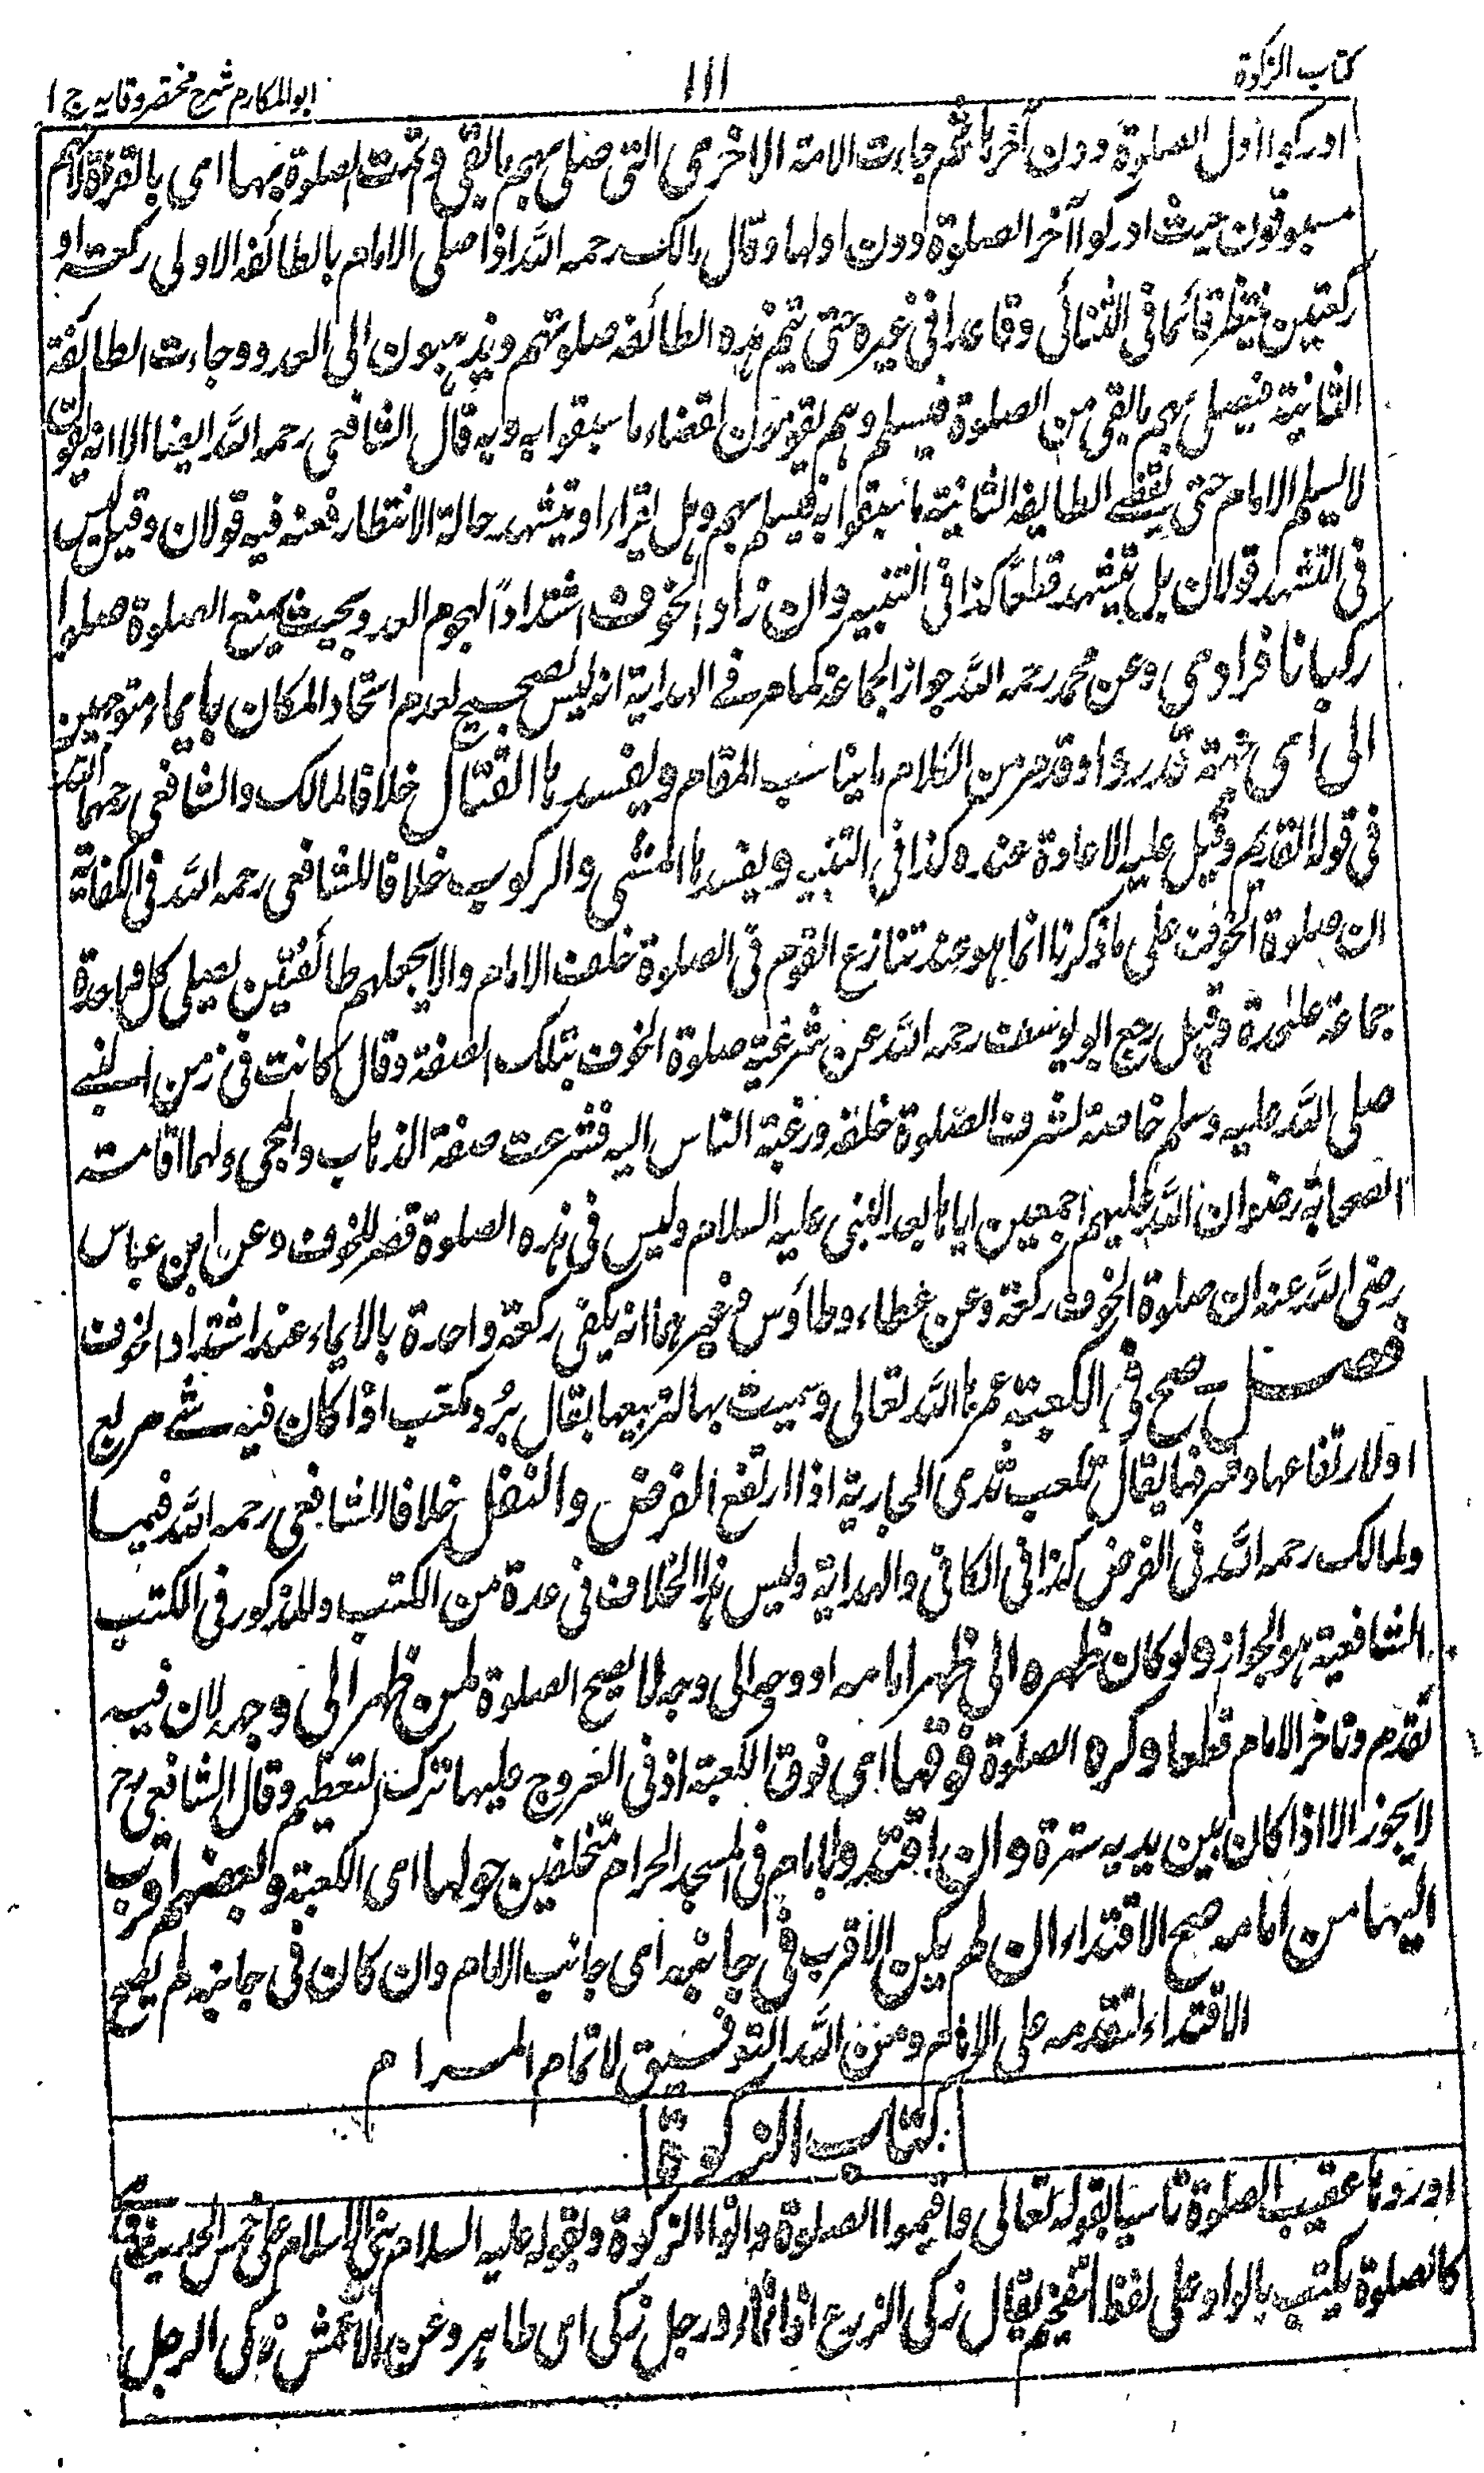 كتاب الزكوة
١١١
ابو المكارم شرح مختصر وقايه ج ١
ادركوا اول الصلوة دون آخرها ثم جاءت الامة الاخرى التي صلى بهم ما بقي وتمت الصلوة بها اى بالقراءة لانهم
مسبوقون حيث ادركوا آخر الصلوة دون اولها وقال مالك رحمه الله اذا صلى الامام بالطائفة الاولى ركعة او
ركعتين ينتظر قائما في الثنائي وقاعدا في غيره حتى تتم هذه الطائفة صلوتهم ويذهبون الى العدو وجاءت الطائفة
الثانية فيصلي بهم ما بقي من الصلوة فيسلم وهم يقومون لقضاء ما سبقوا به وبه قال الشافعي رحمه الله ايضا الا انه يقول
لا يسلم الامام حتى يقضے الطايفة الثانية ما سبقوا به فيسلم بهم وهل يقراء او يتشهد حالة الانتظار فعنه فيه قولان وقيل ليس
في التشهد قولان بل يتشهد قطعا كذا في التنبيه وان زاد الخوف اشتدادا لهجوم العدو بحيث يمنع الصلوة صلوا
ركبانا فرادى وعن محمد رحمه الله جواز الجماعة كما مر فے الهداية انه ليس بصحيح لعدم اتحاد المكان بايماء متوجهين
الى اى جهة قدروا وقد مر من الكلام ما يناسب المقام ويفسدها القتال خلافا لمالك والشافعي رحمهما الله
في قوله القديم وقيل عليه الاعادة عنده كذا في التنبيه ويفسدها المشي والركوب خلافا للشافعي رحمه الله في الكفاية
ان صلوة الخوف على ما ذكرنا انما هو عند تنازع القوم في الصلوة خلف الامام والا يجعلهم طائفتين ليصلي كل واحدة
جماعة علحدة وقيل رجع ابو يوسف رحمه الله عن شرعية صلوة الخوف بتلك الصفة وقال كانت في زمن النبے
صلى الله عليه وسلم خاصة لشرف الصلوة خلفه ورغبة الناس اليه فشرعت صفة الذهاب والمجى ولهما اقامة
الصحابة رضوان الله عليهم اجمعين اياها بعد النبي عليه السلام وليس في هذه الصلوة قصر للخوف وعن ابن عباس
رضى الله عنه ان صلوة الخوف ركعة وعن عطاء وطاؤس وغيرهما انه يكفي ركعة واحدة بالايماء عند اشتداد الخوف
فصل صح في الكعبة عمرها الله تعالى وسميت بها لتربيعها يقال برد مكعب اذا كان فيه شے مربع
او لارتفاعها وشرفها يقال تكعب ثدى الجارية اذا ارتفع الفرض والنفل خلافا للشافعي رحمه الله فيهما
ولمالك رحمه الله في الفرض كذا في الكافي والهداية وليس هذا الخلاف في عدة من الكتب والمذكور في الكتب
الشافعية هو الجواز ولو كان ظهره الى ظهر امامه او وجهه الى وجهه لا يصح الصلوة لمن ظهره الى وجهه لان فيه
تقدم وتاخر الامام قطعا وكره الصلوة فوقها اى فوق الكعبة اذ في العروج عليها ترك التعظيم وقال الشافعي رحـ
لا يجوز الا اذا كان بين يديه سترة وان اقتدوا بامام في المسجد الحرام متحلقين حولها اى الكعبة وبعضهم اقرب
اليها من امامه صح الاقتداء ان لم يكن الاقرب في جانبه اى جانب الامام وان كان في جانبه لم يصح
الاقتداء لتقدمه على الامام ومن الله التوفيق لاتمام المرام
كتاب الزكوة
اوردها عقيب الصلوة تاسيا بقوله تعالى واقيموا الصلوة وآتوا الزكوة وبقوله عليه السلام بني الاسلام على خمس الحديث
كالصلوة يكتب بالواو على لفظ التفخيم يقال زكى الزرع اذا نما ورجل زكى اى طاهر وعن الاعمش زكى الرجل